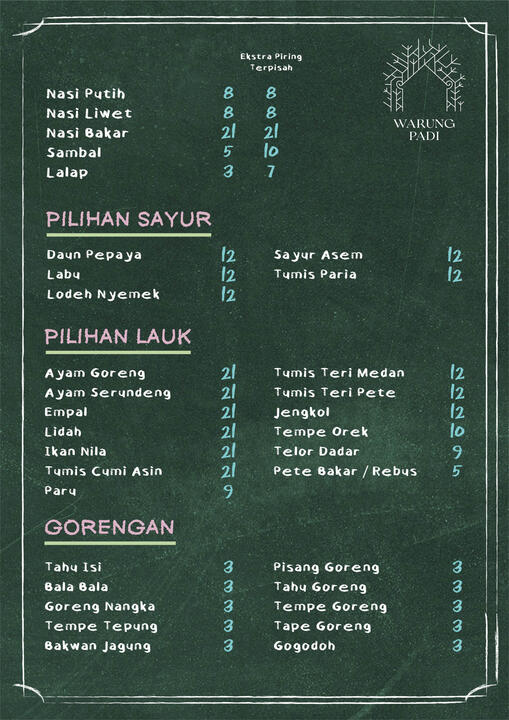 Ekstra Piring
Terpisah
WARUNG
PADI
Nasi Putih 8 8
Nasi Liwet 8 8
Nasi Bakar 21 21
Sambal 5 10
Lalap 3 7
PILIHAN SAYUR
Daun Pepaya 12 Sayur Asem 12
Labu 12 Tumis Paria 12
Lodeh Nyemek 12
PILIHAN LAUK
Ayam Goreng 21 Tumis Teri Medan 12
Ayam Serundeng 21 Tumis Teri Pete 12
Empal 21 Jengkol 12
Lidah 21 Tempe Orek 10
Ikan Nila 21 Telor Dadar 9
Tumis Cumi Asin 21 Pete Bakar / Rebus 5
Paru 9
GORENGAN
Tahu Isi 3 Pisang Goreng 3
Bala Bala 3 Tahu Goreng 3
Goreng Nangka 3 Tempe Goreng 3
Tempe Tepung 3 Tape Goreng 3
Bakwan Jagung 3 Gogodoh 3